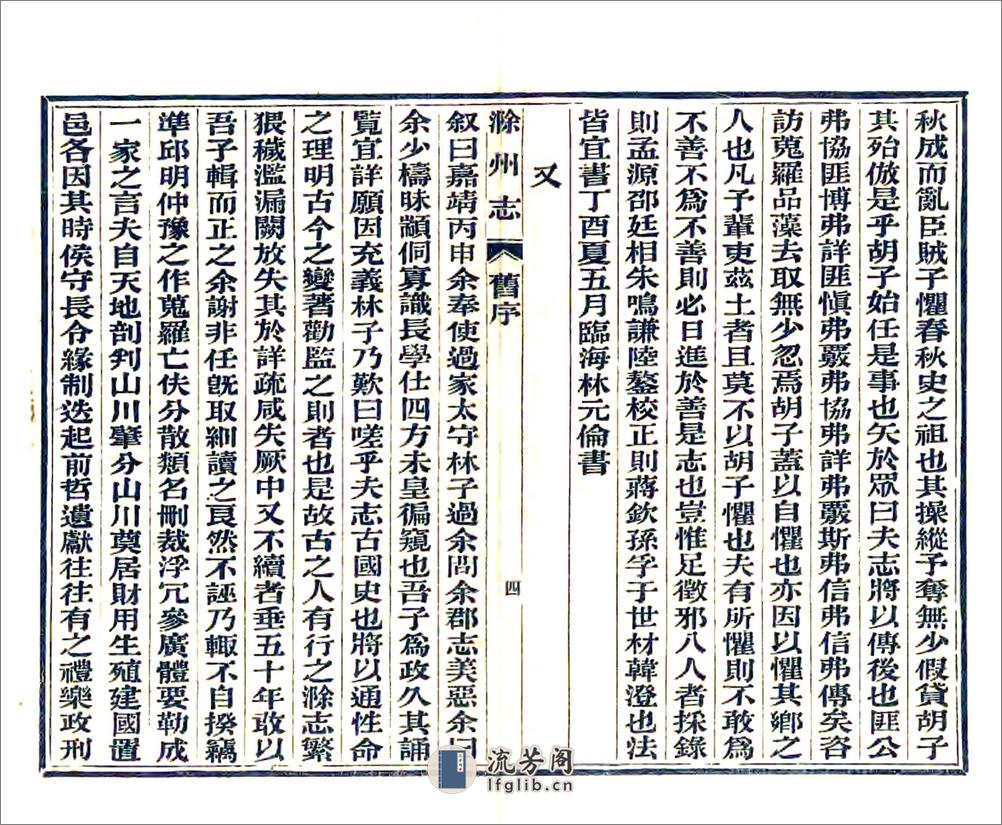 秋成而亂臣賊子懼春秋史之祖也其操縱予奪無少假貸胡子
其殆倣是乎胡子始任是事也矢於眾曰夫志將以傳後也匪公
弗協匪博弗詳匪愼弗覈弗協弗詳弗覈斯弗信弗信弗傳矣咨
訪蒐羅品藻去取無少忽焉胡子蓋以自懼也亦因以懼其鄉之
人也凡子輩吏茲土者且莫不以胡子懼也夫有所懼則不敢為
不善不為不善則必日進於善是志也豈惟足徵邪八人者採錄
則孟源邵廷相朱鳴謙陸鏊校正則蔣欽孫孚于世材韓澄也法
皆宜書丁酉夏五月臨海林元倫書
又
滁州志 舊序 四
叙曰嘉靖丙申余奉使過家太守林子過余問余郡志美惡余曰
余少檮昧顓侗寡識長學仕四方未皇徧窺也吾子為政久其誦
覽宜詳願因充義林子乃歎曰嗟乎夫志古國史也將以通性命
之理明古今之變著勸監之則者也是故古之人有行之滁志繁
猥穢濫漏闕放失其於詳疏咸失厥中又不續者垂五十年敢以
吾子輯而正之余謝非任旣取細讀之良然不誣乃輙不自揆竊
準邱明仲豫之作蒐羅亡佚分散類名刪裁浮冗參廣體要勒成
一家之言夫自天地剖判山川肇分山川奠居財用生殖建國置
邑各因其時侯守長令緣制迭起前哲遺獻往往有之禮樂政刑
流芳阁
lfglib.cn